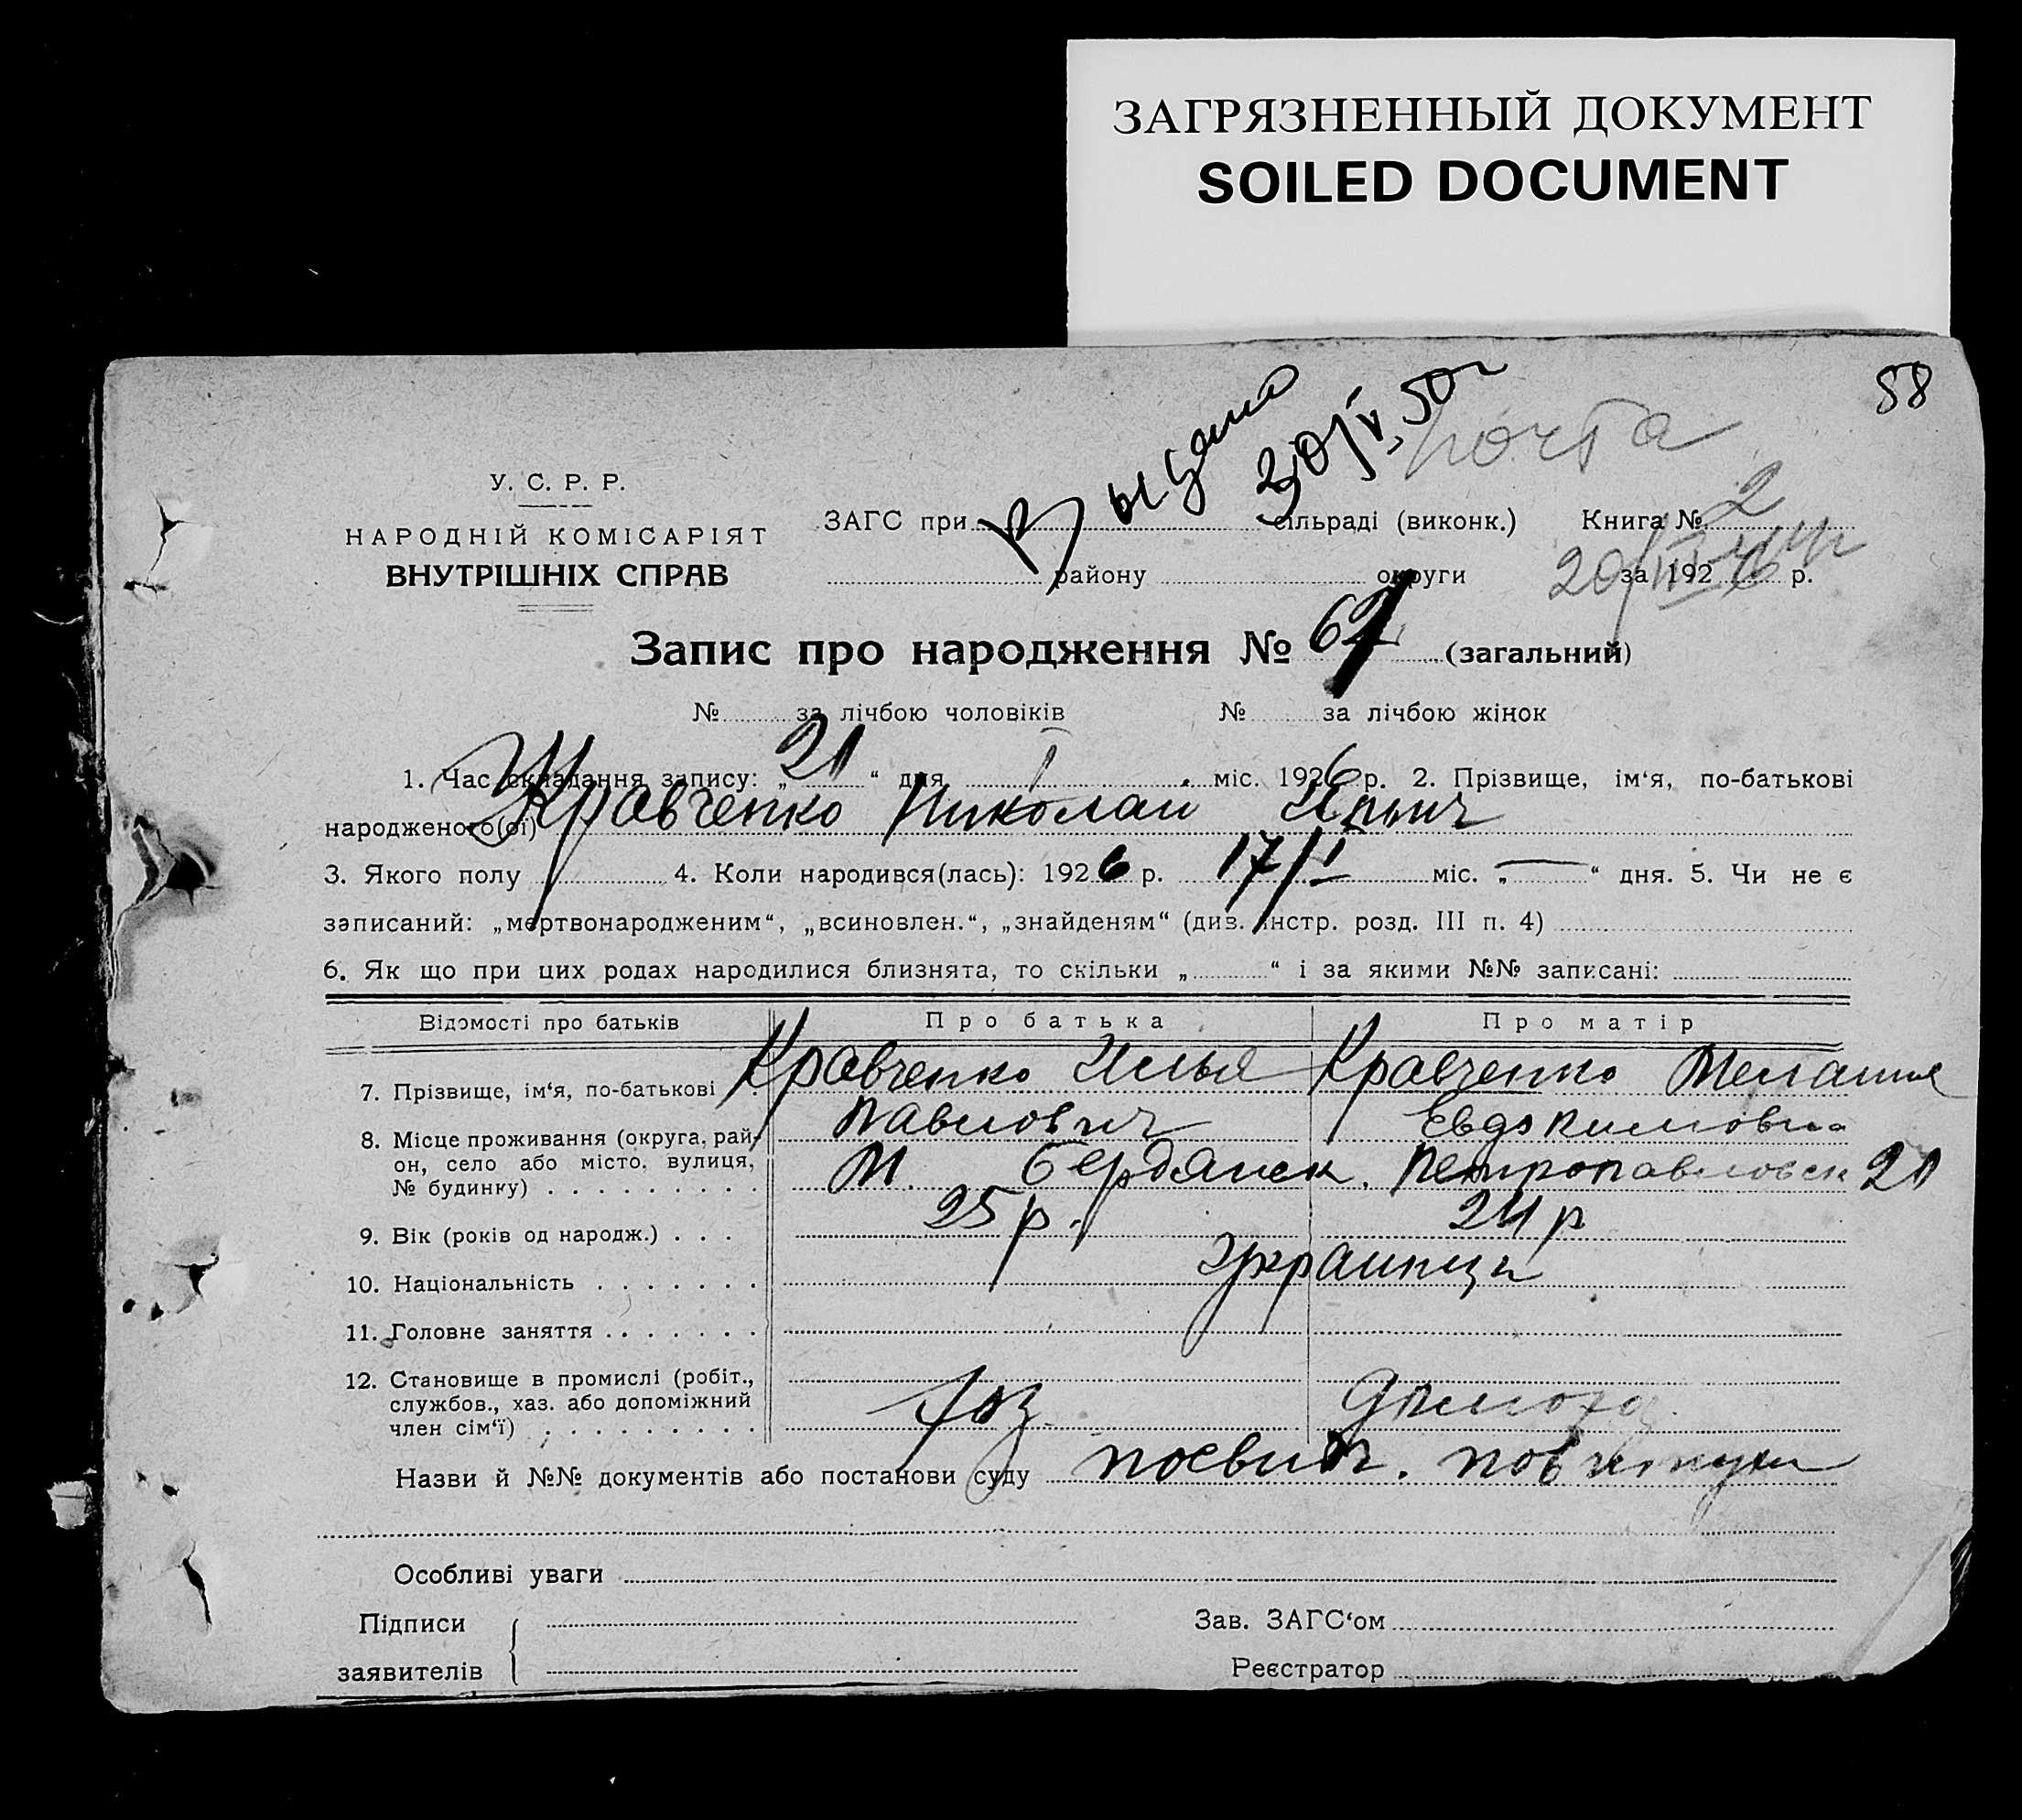 ЗАГРЯЗНЕННЫЙ ДОКУМЕНТ
SOILED DOCUMENT
58
Выдано
30/V 50 г
почта
У. С. Р. Р.
НАРОДНІЙ КОМІСАРІЯТ
ВНУТРІШНІХ СПРАВ
ЗАГС при сільраді (виконк.) Книга № 2
району округи за 1926 р.
Запис про народження № 67 (загальний)
№ за лічбою чоловіків № за лічбою жінок
1. Час складання запису: „21“ дня I міс. 1926 р. 2. Прізвище, ім‘я, по-батькові
народженого(ої) Кравченко Николай Ильич
3. Якого полу 4. Коли народився(лась): 1926 р. 17/I міс. „—“ дня. 5. Чи не є
записаний: „мертвонародженим“, „всиновлен.“, „знайденям“ (див. інстр. розд. III п. 4)
6. Як що при цих родах народилися близнята, то скільки „ “ і за якими №№ записані:
Відомості про батьків Про батька Про матір
7. Прізвище, ім‘я, по-батькові Кравченко Илья Кравченко Мелания
Павлович Евдокимовна
8. Місце проживання (округа, рай-
он, село або місто, вулиця,
№ будинку) М. Бердянск. Петропавловск 21
9. Вік (років од народж.) 25 р. 24 р
10. Національність Украинци
11. Головне заняття
12. Становище в промислі (робіт.,
службов., хаз. або допоміжний
член сім‘ї) хоз домохоз.
Назви й №№ документів або постанови суду посвидч.
Особливі уваги
Підписи
заявителів
Зав. ЗАГС‘ом
Реєстратор